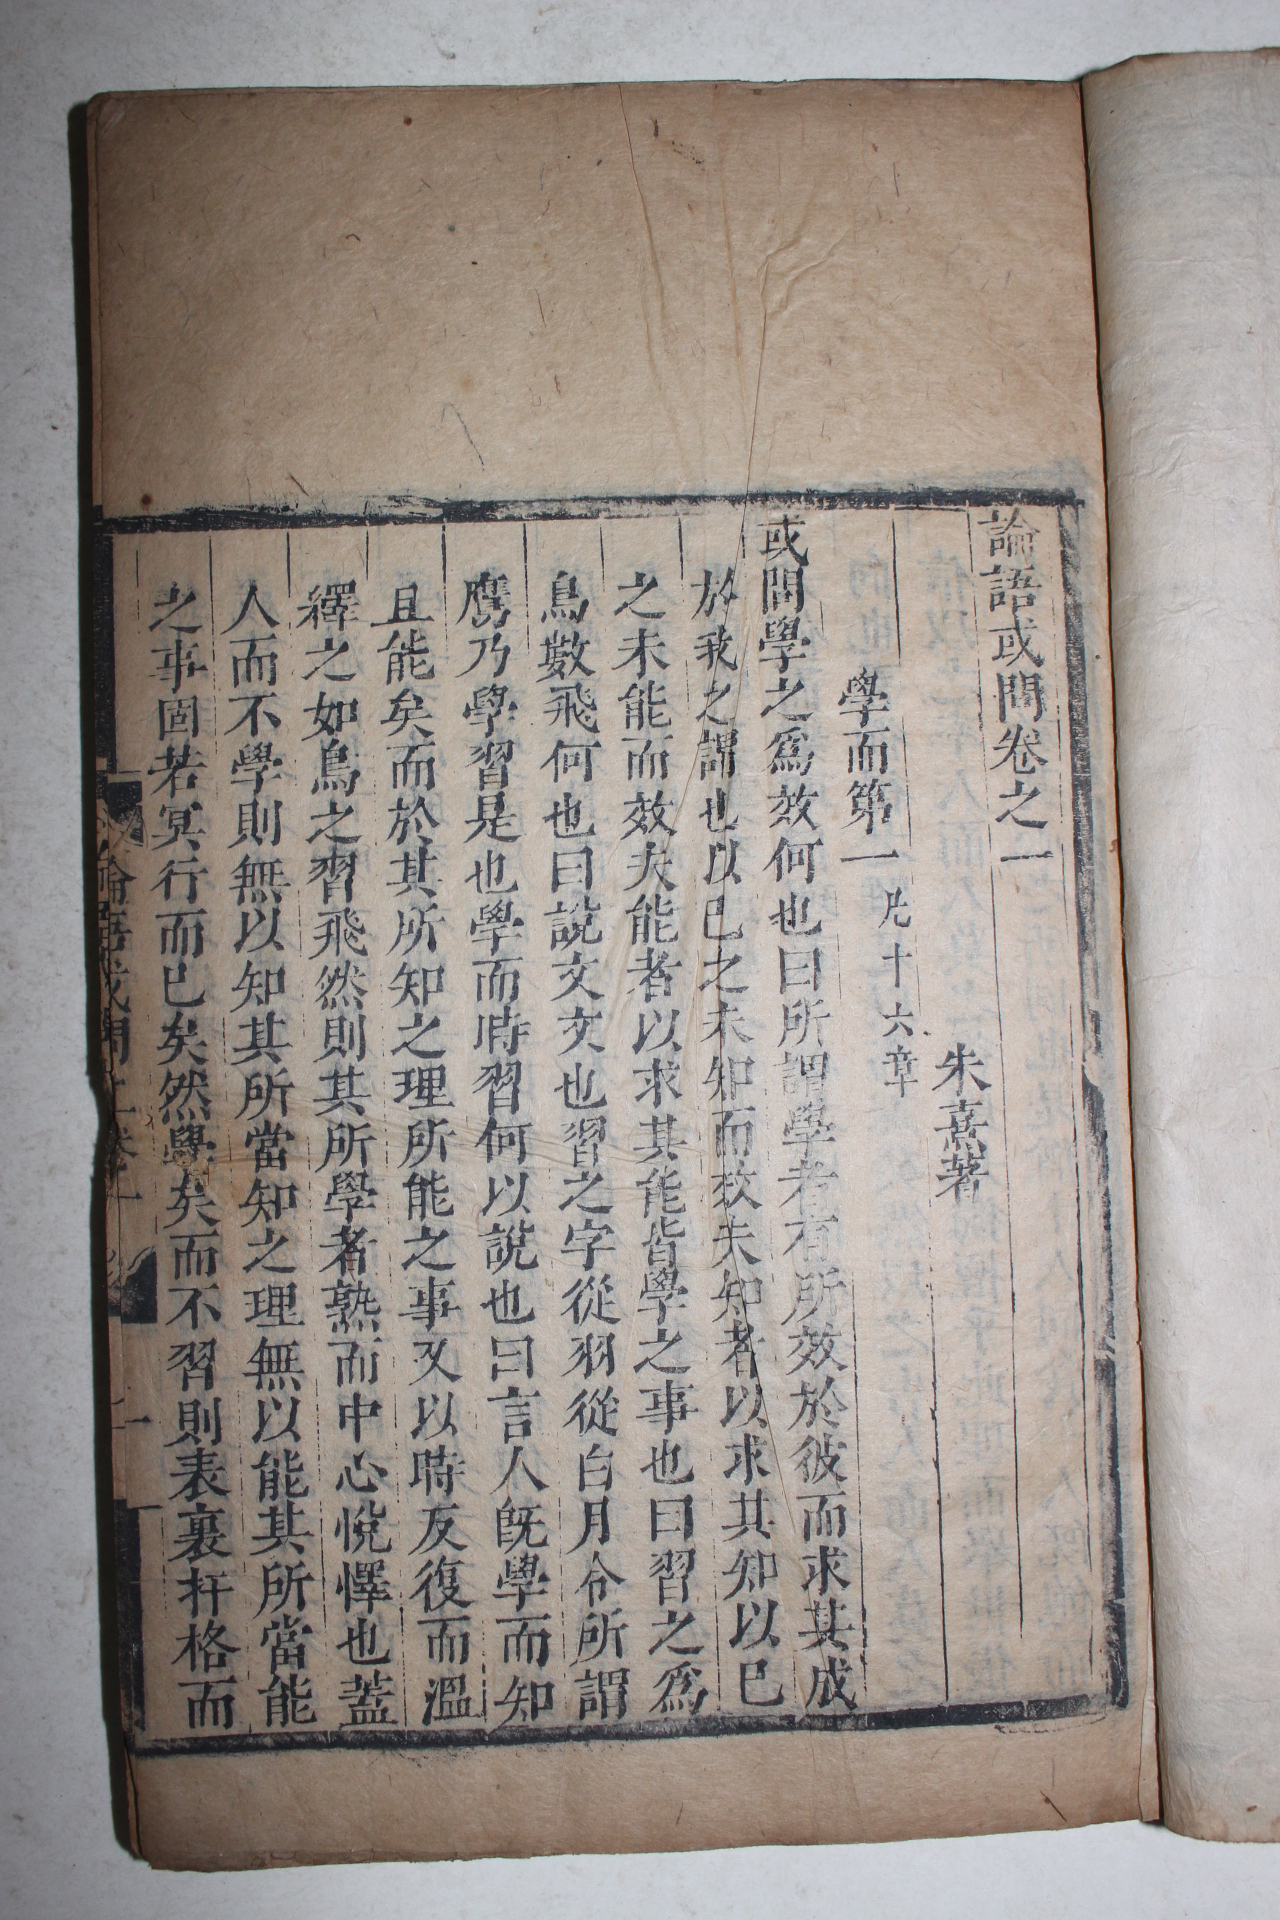 論語或問卷之一
朱熹著
學而第一凡十六章
或問學之爲效何也曰所謂學者有所效於彼而求其成
於我之謂也以已之未知而效夫知者以求其知以已
之未能而效夫能者以求其能皆學之事也曰習之爲
鳥數飛何也曰說文文也習之字從羽從白月令所謂
鷹乃學習是也學而時習何以說也曰言人旣學而知
且能矣而於其所知之理所能之事又以時反復而溫
繹之如鳥之習飛然則其所學者熟而中心悅懌也蓋
人而不學則無以知其所當知之理無以能其所當能
之事固若冥行而已矣然學矣而不習則表裏扞格而
論語或問 卷一